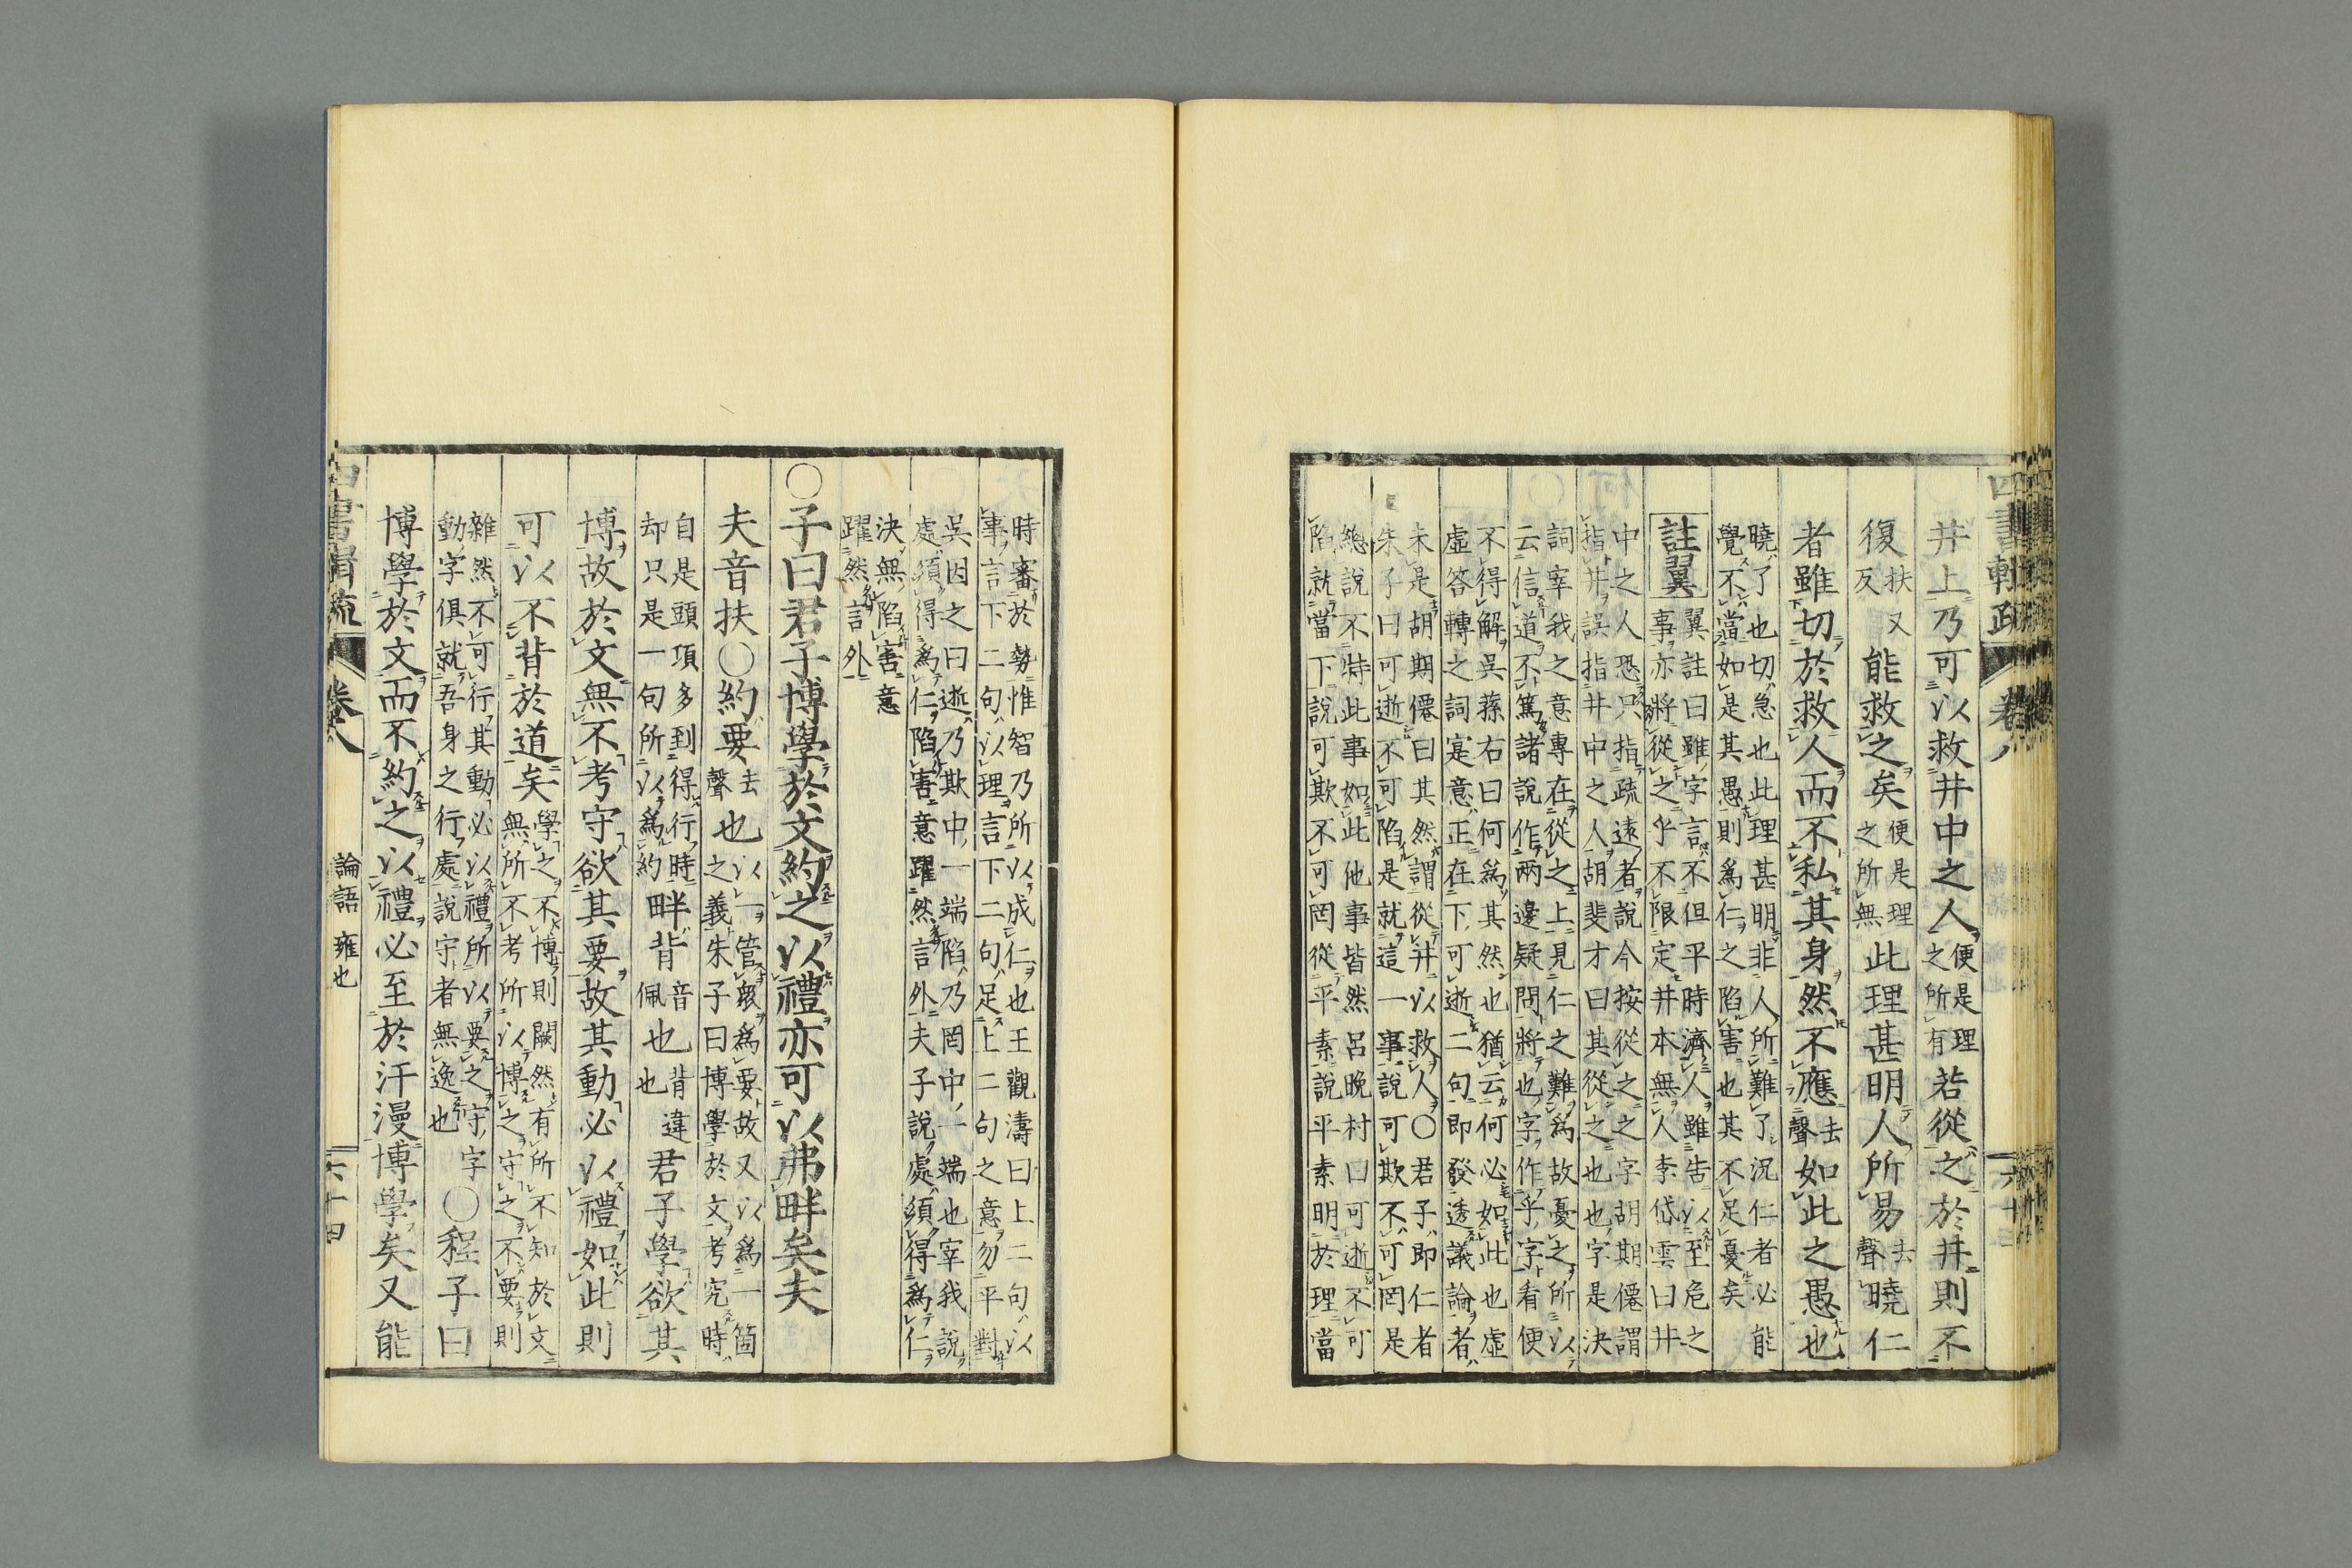 井上乃可以救井中之人便是理之所有若從之於井則不
復扶又反能救之矣便是理之所無此理甚明人所易去聲曉仁
者雖切於救人而不私其身然不應去聲如此之愚也
曉了也切急也此理甚明非人所難了況仁者必能
覺不當如是其愚則爲仁之陷害也其不足憂矣
註翼
翼註曰雖字言不但平時濟人雖告以至危之
事亦將從之乎不限定井本無人李岱雲曰井
中之人恐只指疏遠者說今按從之之字胡期僊謂
指井誤指井中之人胡斐才曰其從之也也字是決
詞宰我之意專在從之上見仁之難爲故憂之所以
云信道不篤諸說作兩邊疑問將也字作乎字看便
不得解吳蓀右曰何爲其然也猶云何必如此也虛
虛答轉之詞寔意正在下可逝二句即發透議論者
未是胡期僊曰其然謂從井以救人○君子即仁者
朱子曰可逝不可陷是就這一事說可欺不可罔是
總說不特此事如此他事皆然呂晚村曰可逝不可
陷就當下說可欺不可罔從平素說平素明於理當
四書輯疏 卷八
時審於勢惟智乃所以成仁也王觀濤曰上二句以
事言下二句以理言下二句足上二句之意勿平對
吳因之曰逝乃欺中一端陷乃罔中一端也宰我說
處須得爲仁陷害意躍然言外夫子說處須得爲仁
決無陷害意
躍然言外
○子曰君子博學於文約之以禮亦可以弗畔矣夫
夫音扶○約要去聲也以一管衆爲要故又以爲一箇之義朱子曰博學於文考究時
自是頭項多到得行時却只是一句所以爲約畔背音佩也背違也君子學欲其
博故於文無不考守欲其要故其動必以禮如此則
可以不背於道矣學之不博則闕然有所不知於文無所不考所以博之守之不要則
雜然不可行其動必以禮所以要之守字
動字俱就吾身之行處說守者無逸也○程子曰
博學於文而不約之以禮必至於汗漫博學矣又能
四書輯疏 卷八 論語 雍也 六十四